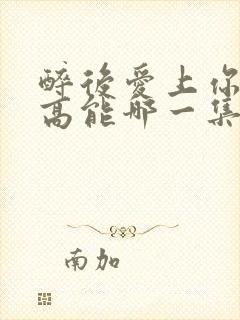 醉後愛上你
高能那一集
南加